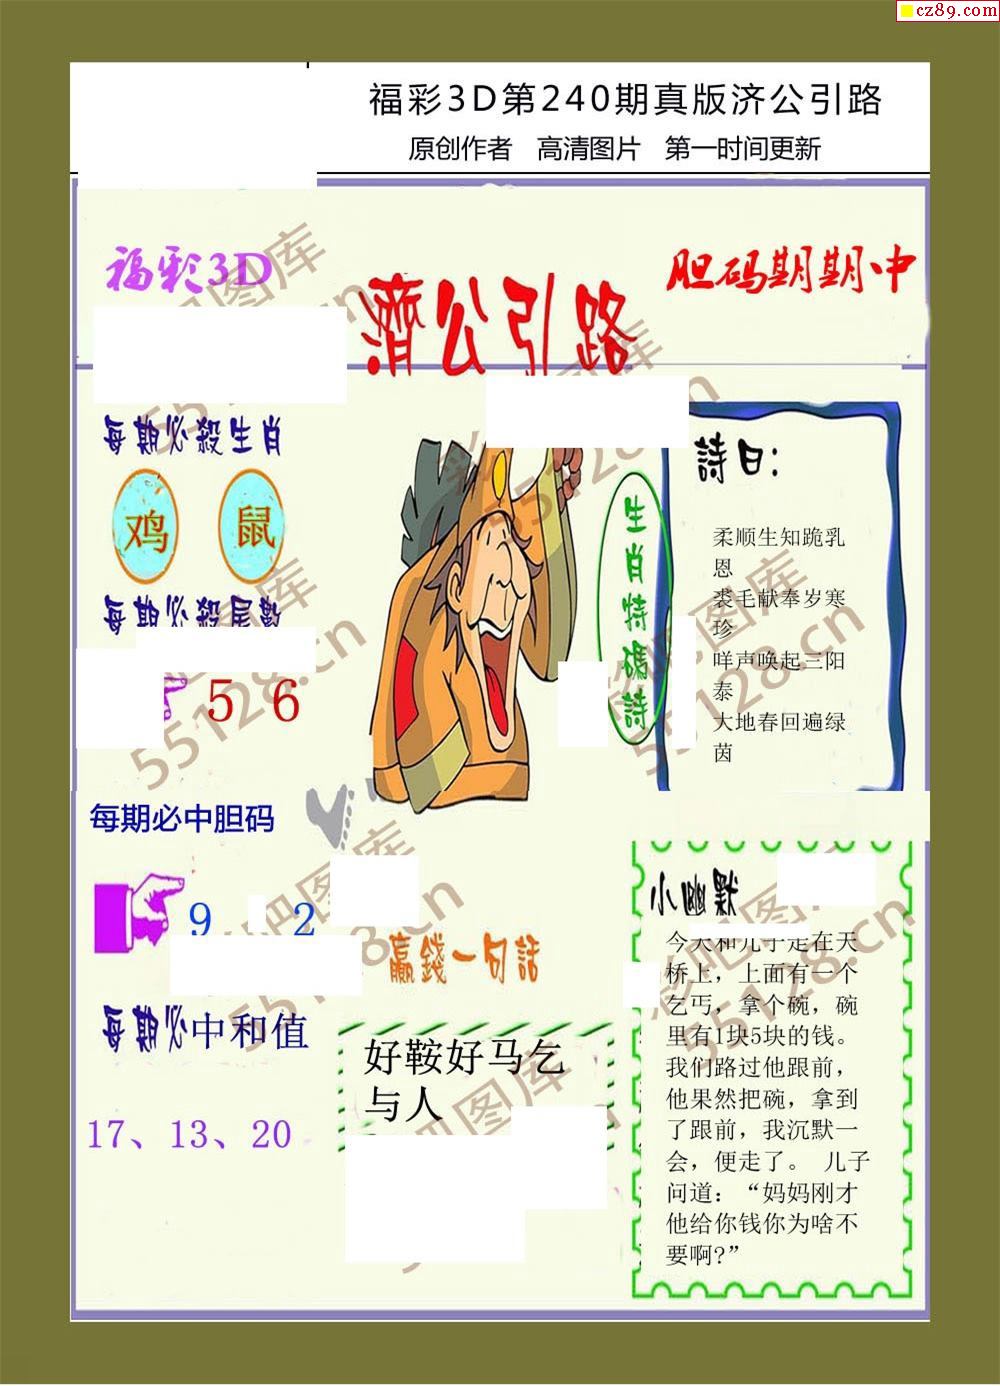 cz89.com
福彩3D第240期真版济公引路
原创作者 高清图片 第一时间更新
福彩3D
濟公引路
胆码期期中
每期必殺生肖
鸡 鼠
每期必殺尾數
5 6
每期必中胆码
9 2
每期必中和值
17、13、20
生肖特碼詩
詩曰:
柔顺生知跪乳
恩
裘毛献奉岁寒
珍
咩声唤起三阳
泰
大地春回遍绿
茵
赢錢一句話
好鞍好马乞
与人
小幽默
今天和儿子走在天
桥上，上面有一个
乞丐，拿个碗，碗
里有1块5块的钱。
我们路过他跟前，
他果然把碗，拿到
了跟前，我沉默一
会，便走了。 儿子
问道：“妈妈刚才
他给你钱你为啥不
要啊?”
彩吧图库
55128.cn